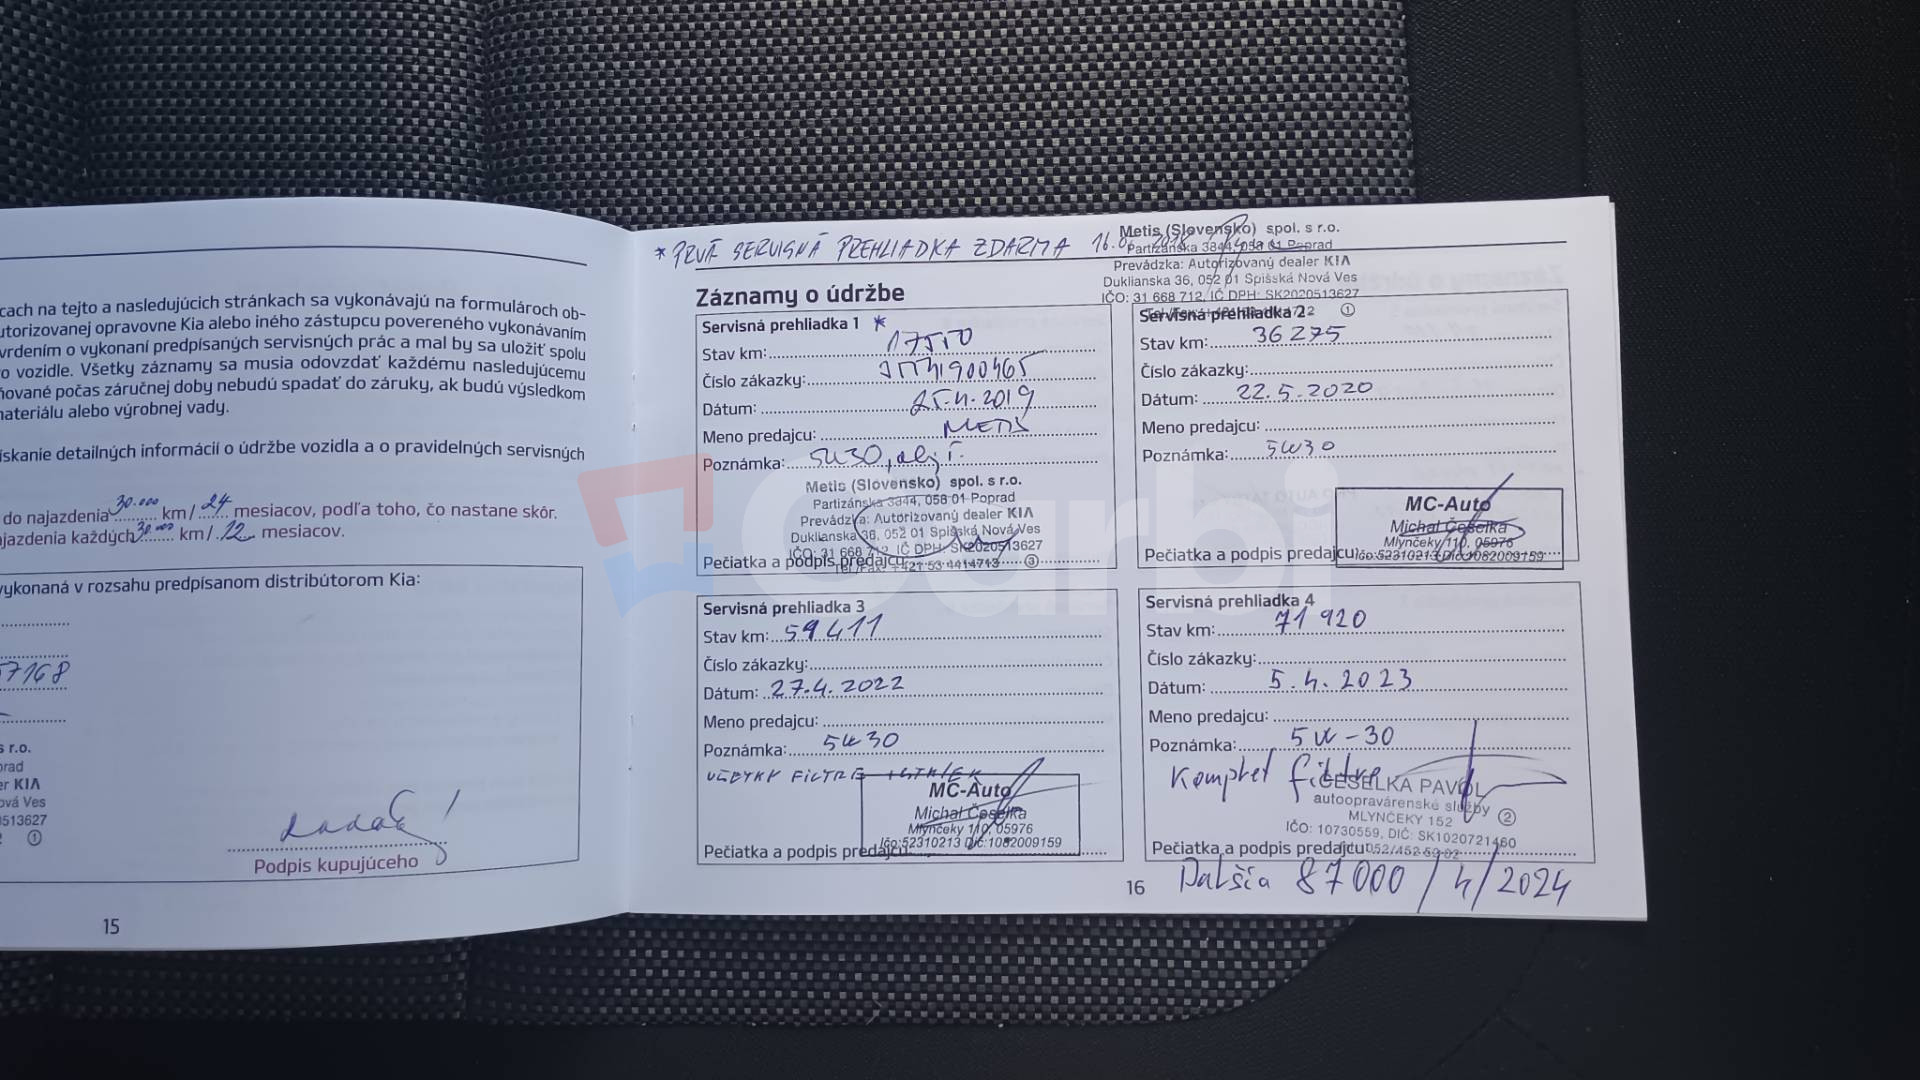 cach na tejto a nasledujúcich stránkach sa vykonávajú na formulároch ob-
utorizovanej opravovne Kia alebo iného zástupcu povereného vykonávaním
vrdením o vykonaní predpísaných servisných prác a mal by sa uložiť spolu
o vozidle. Všetky záznamy sa musia odovzdať každému nasledujúcemu
ňované počas záručnej doby nebudú spadať do záruky, ak budú výsledkom
materiálu alebo výrobnej vady.
ískanie detailných informácií o údržbe vozidla a o pravidelných servisných
do najazdenia 30.000 km/ 24 mesiacov, podľa toho, čo nastane skôr.
ajazdenia každých 30.000 km/ 12 mesiacov.
vykonaná v rozsahu predpísanom distribútorom Kia:
57168
s r.o.
orad
er KIA
ová Ves
0513627
①
Podpis kupujúceho
15
* PRVÁ SERVISNÁ PREHLIADKA ZDARMA
Metis (Slovensko) spol. s r.o.
Partizánska 3844, 058 01 Poprad
Prevádzka: Autorizovaný dealer KIA
Duklianska 36, 052 01 Spišská Nová Ves
IČO: 31 668 712, IČ DPH: SK2020513627
①
Záznamy o údržbe
Servisná prehliadka 1 *
Stav km: 17550
Číslo zákazky:
Dátum:
Meno predajcu: METIS
Poznámka: 5W30,
Metis (Slovensko) spol. s r.o.
Partizánska 3844, 058 01 Poprad
Prevádzka: Autorizovaný dealer KIA
Duklianska 36, 052 01 Spišská Nová Ves
IČO: 31 668 712, IČ DPH: SK2020513627
Tel./Fax: +421 53 4414713 ③
Pečiatka a podpis predajcu
Servisná prehliadka 2
Stav km: 36275
Číslo zákazky:
Dátum: 22.5.2020
Meno predajcu:
Poznámka: 5W30
MC-Auto
Michal Češelka
Mlynčeky 110, 05976
Ičo:52310213 Dič:1082009159
Pečiatka a podpis predajcu
Servisná prehliadka 3
Stav km: 59411
Číslo zákazky:
Dátum: 27.4.2022
Meno predajcu:
Poznámka: 5W30
VŠETKY FILTRE
MC-Auto
Michal Češelka
Mlynčeky 110, 05976
Ičo:52310213 Dič:1082009159
Pečiatka a podpis predajcu
Servisná prehliadka 4
Stav km: 71920
Číslo zákazky:
Dátum: 5.4.2023
Meno predajcu:
Poznámka: 5W-30
Komplet filtre
ČEŠELKA PAVOL
autoopravárenské služby ②
MLYNČEKY 152
IČO: 10730559, DIČ: SK1020721460
Pečiatka a podpis predajcu
16
Ďalšia 87000/4/2024
Carbi